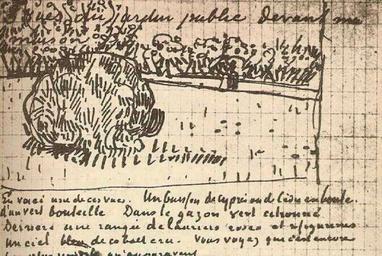 vues du jardin public devant ma
En voici une de ces vues. Un buisson de cyprès ou de cèdre en boule.
d'un vert bouteille Dans le gazon vert citronné
Derriere une rangée de lauriers roses et 2 figurines
Un ciel bleu de cobalt cru. Vous voyez que c'est encore
plus simple qu'auparavant